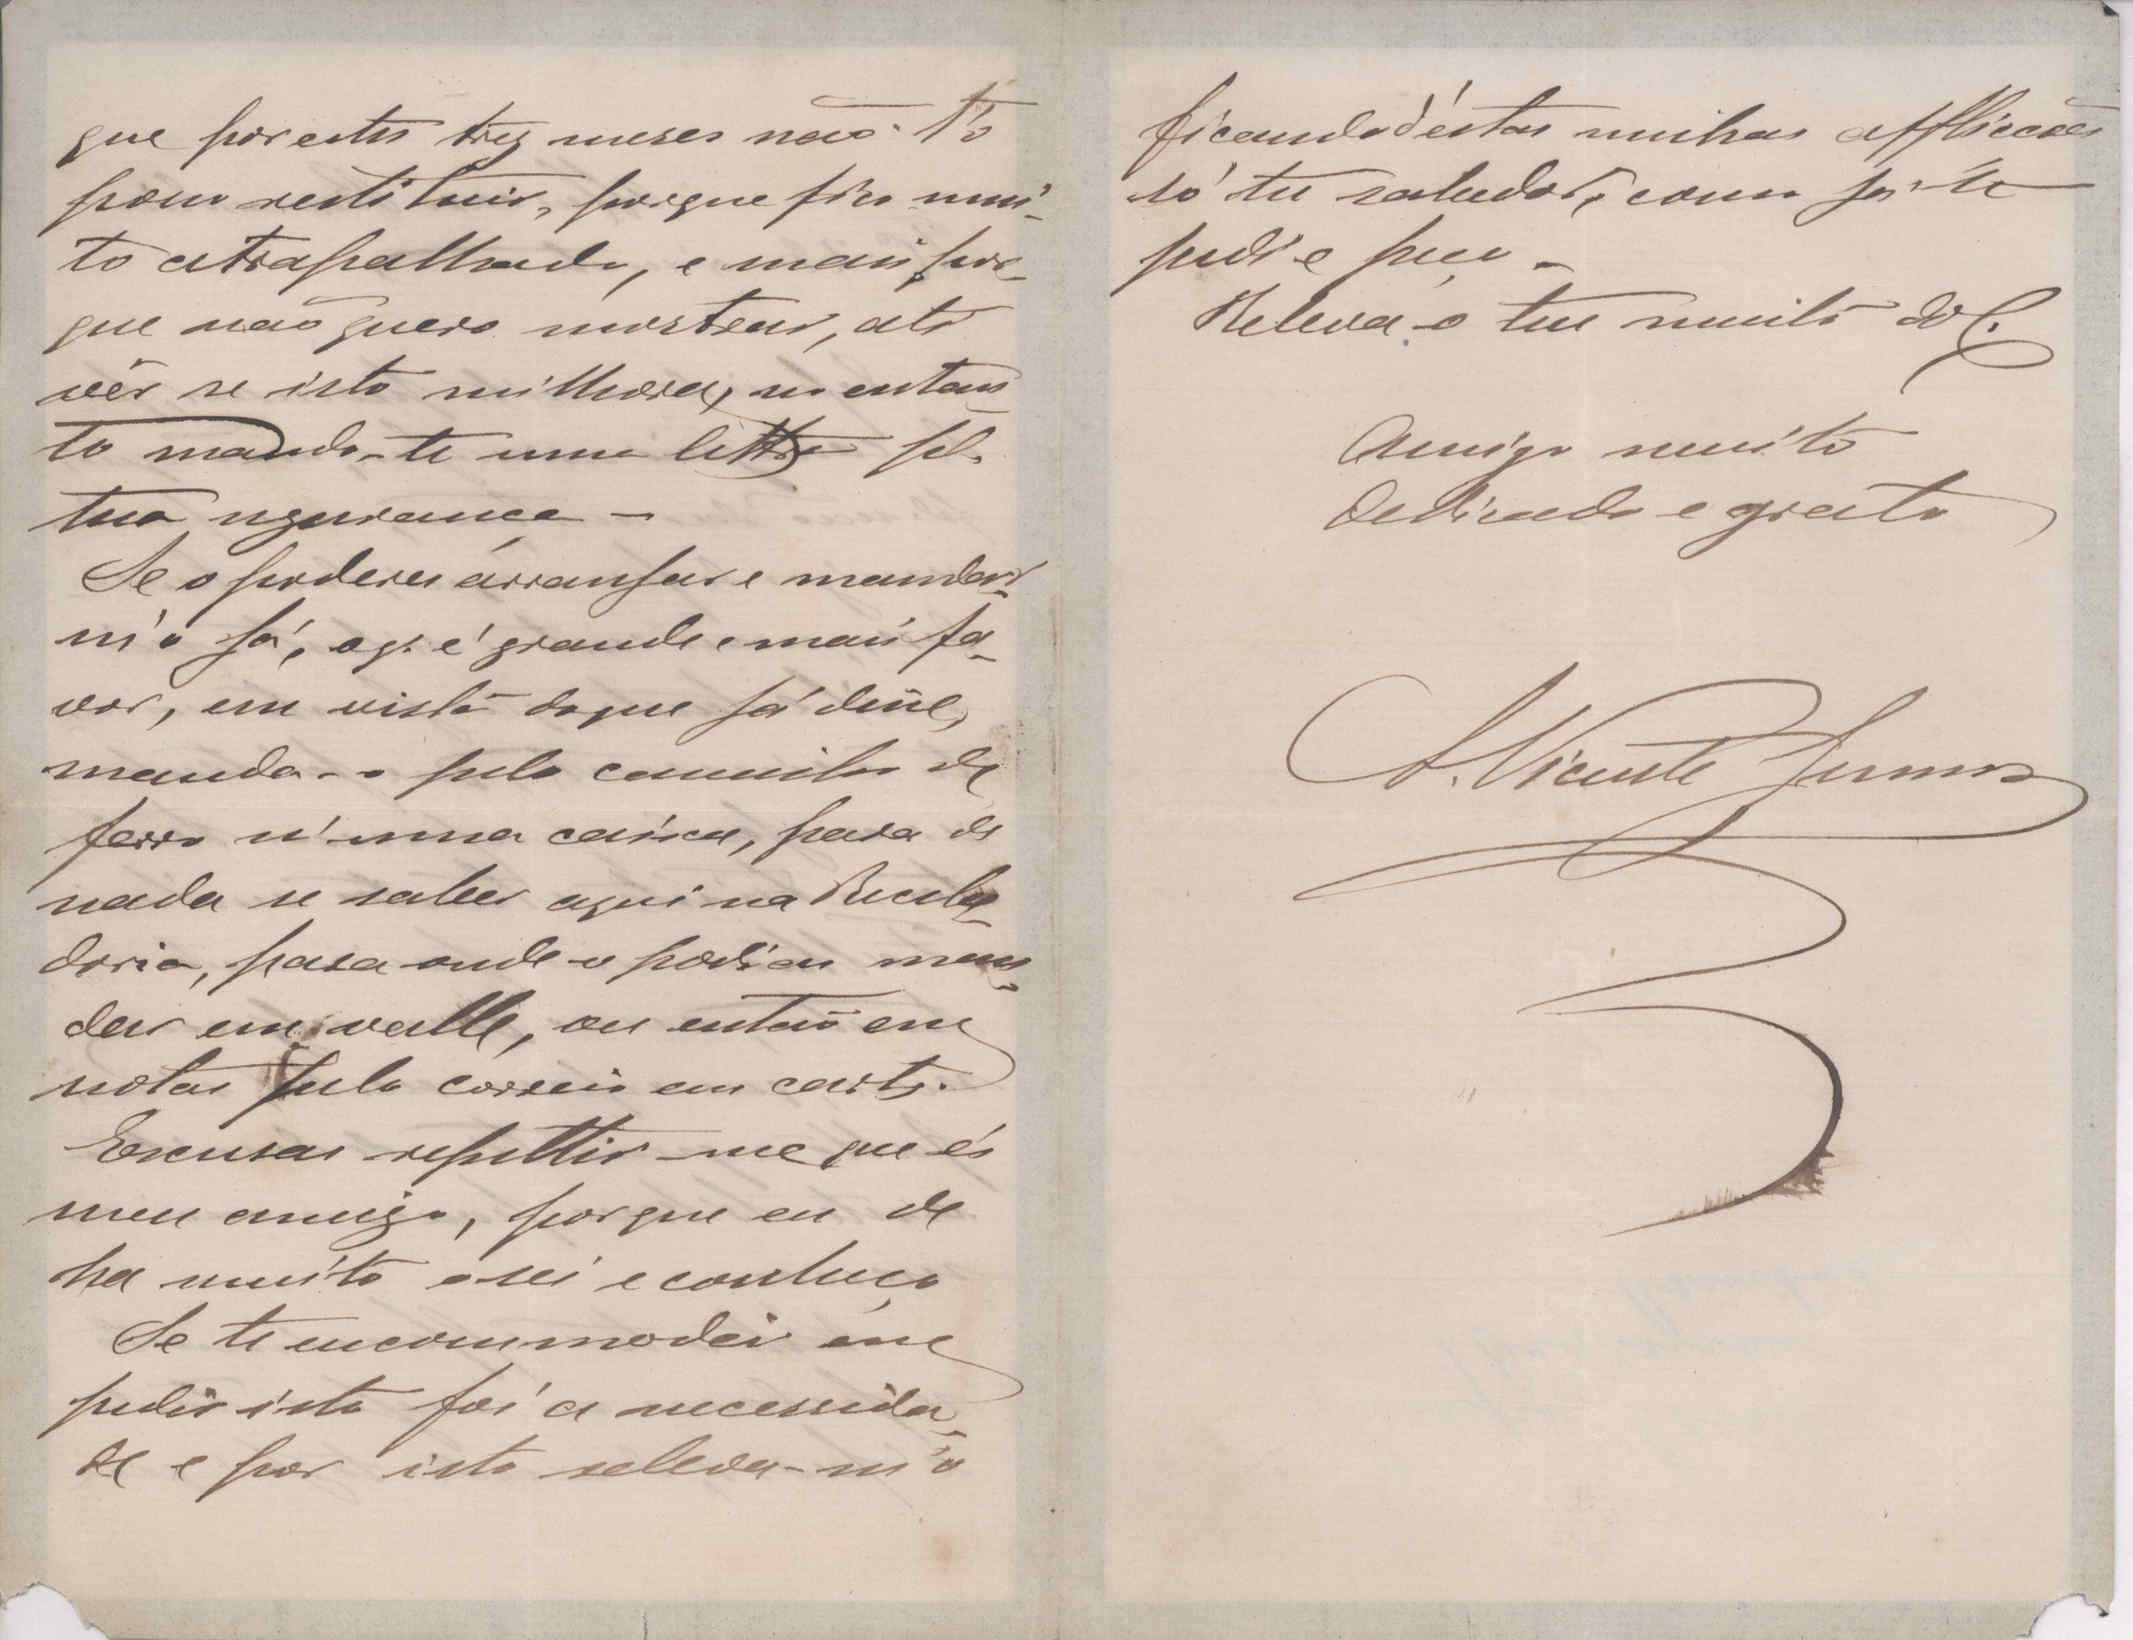 que por estes trez meses não t'o
posso restituir, porque fico mui-
to atrapalhado, e mais por-
que não quero mostrar, até
vêr se isto milhora, no entan-
to mando-te uma lettra pª
tua segurança -
Se o poderes arranjar e mandar-
m'o já, o q. é grande e mais fa-
vor, em vista do que já disse,
manda-o pelo caminho de
ferro n'uma caixa, para de
nada se saber aqui na Recebe-
doria, para onde o podias man-
dar em valle, ou então em
notas pelo correio em carta.
Excusas repettir-me que és
meu amigo, porque eu de
ha muito o sei e conheço
Se te encommodei em
pedir isto foi a necessida-
de e por isto releva-m'o
ficando d'éstas minhas afflicções
só tu sabedor, como já te
pedi e peço -
Releva o teu muito do C.
Amigo muito
dedicado e grato
A. Vicente Junior